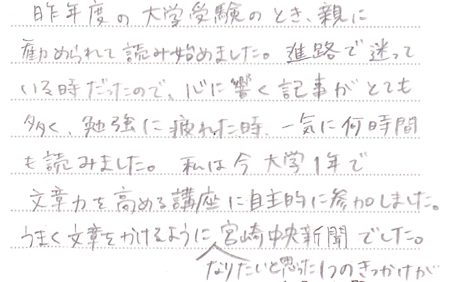 昨年度の大学受験のとき、親に
勧められて読み始めました。進路で迷って
いる時だったので、心に響く記事がとても
多く、勉強に疲れた時、一気に何時間
も読みました。私は今大学1年で
文章力を高める講座に自主的に参加しました。
うまく文章をかけるように宮崎中央新聞でした。
なりたいと思った1つのきっかけが